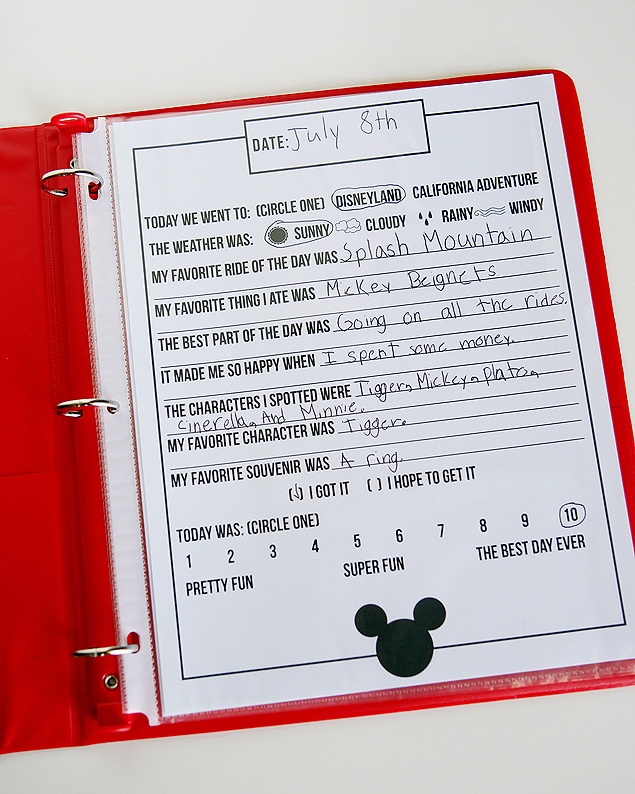 DATE: July 8th
TODAY WE WENT TO: (CIRCLE ONE) DISNEYLAND CALIFORNIA ADVENTURE
THE WEATHER WAS: SUNNY CLOUDY RAINY WINDY
MY FAVORITE RIDE OF THE DAY WAS Splash Mountain
MY FAVORITE THING I ATE WAS McKey Beignets
THE BEST PART OF THE DAY WAS Going on all the rides.
IT MADE ME SO HAPPY WHEN I spent some money.
THE CHARACTERS I SPOTTED WERE Tigger, Mickey, Pluto,
Cinerella, And Minnie.
MY FAVORITE CHARACTER WAS Tigger.
MY FAVORITE SOUVENIR WAS A ring.
(✓) I GOT IT ( ) I HOPE TO GET IT
TODAY WAS: (CIRCLE ONE)
1 2 3 4 5 6 7 8 9 10
PRETTY FUN SUPER FUN THE BEST DAY EVER